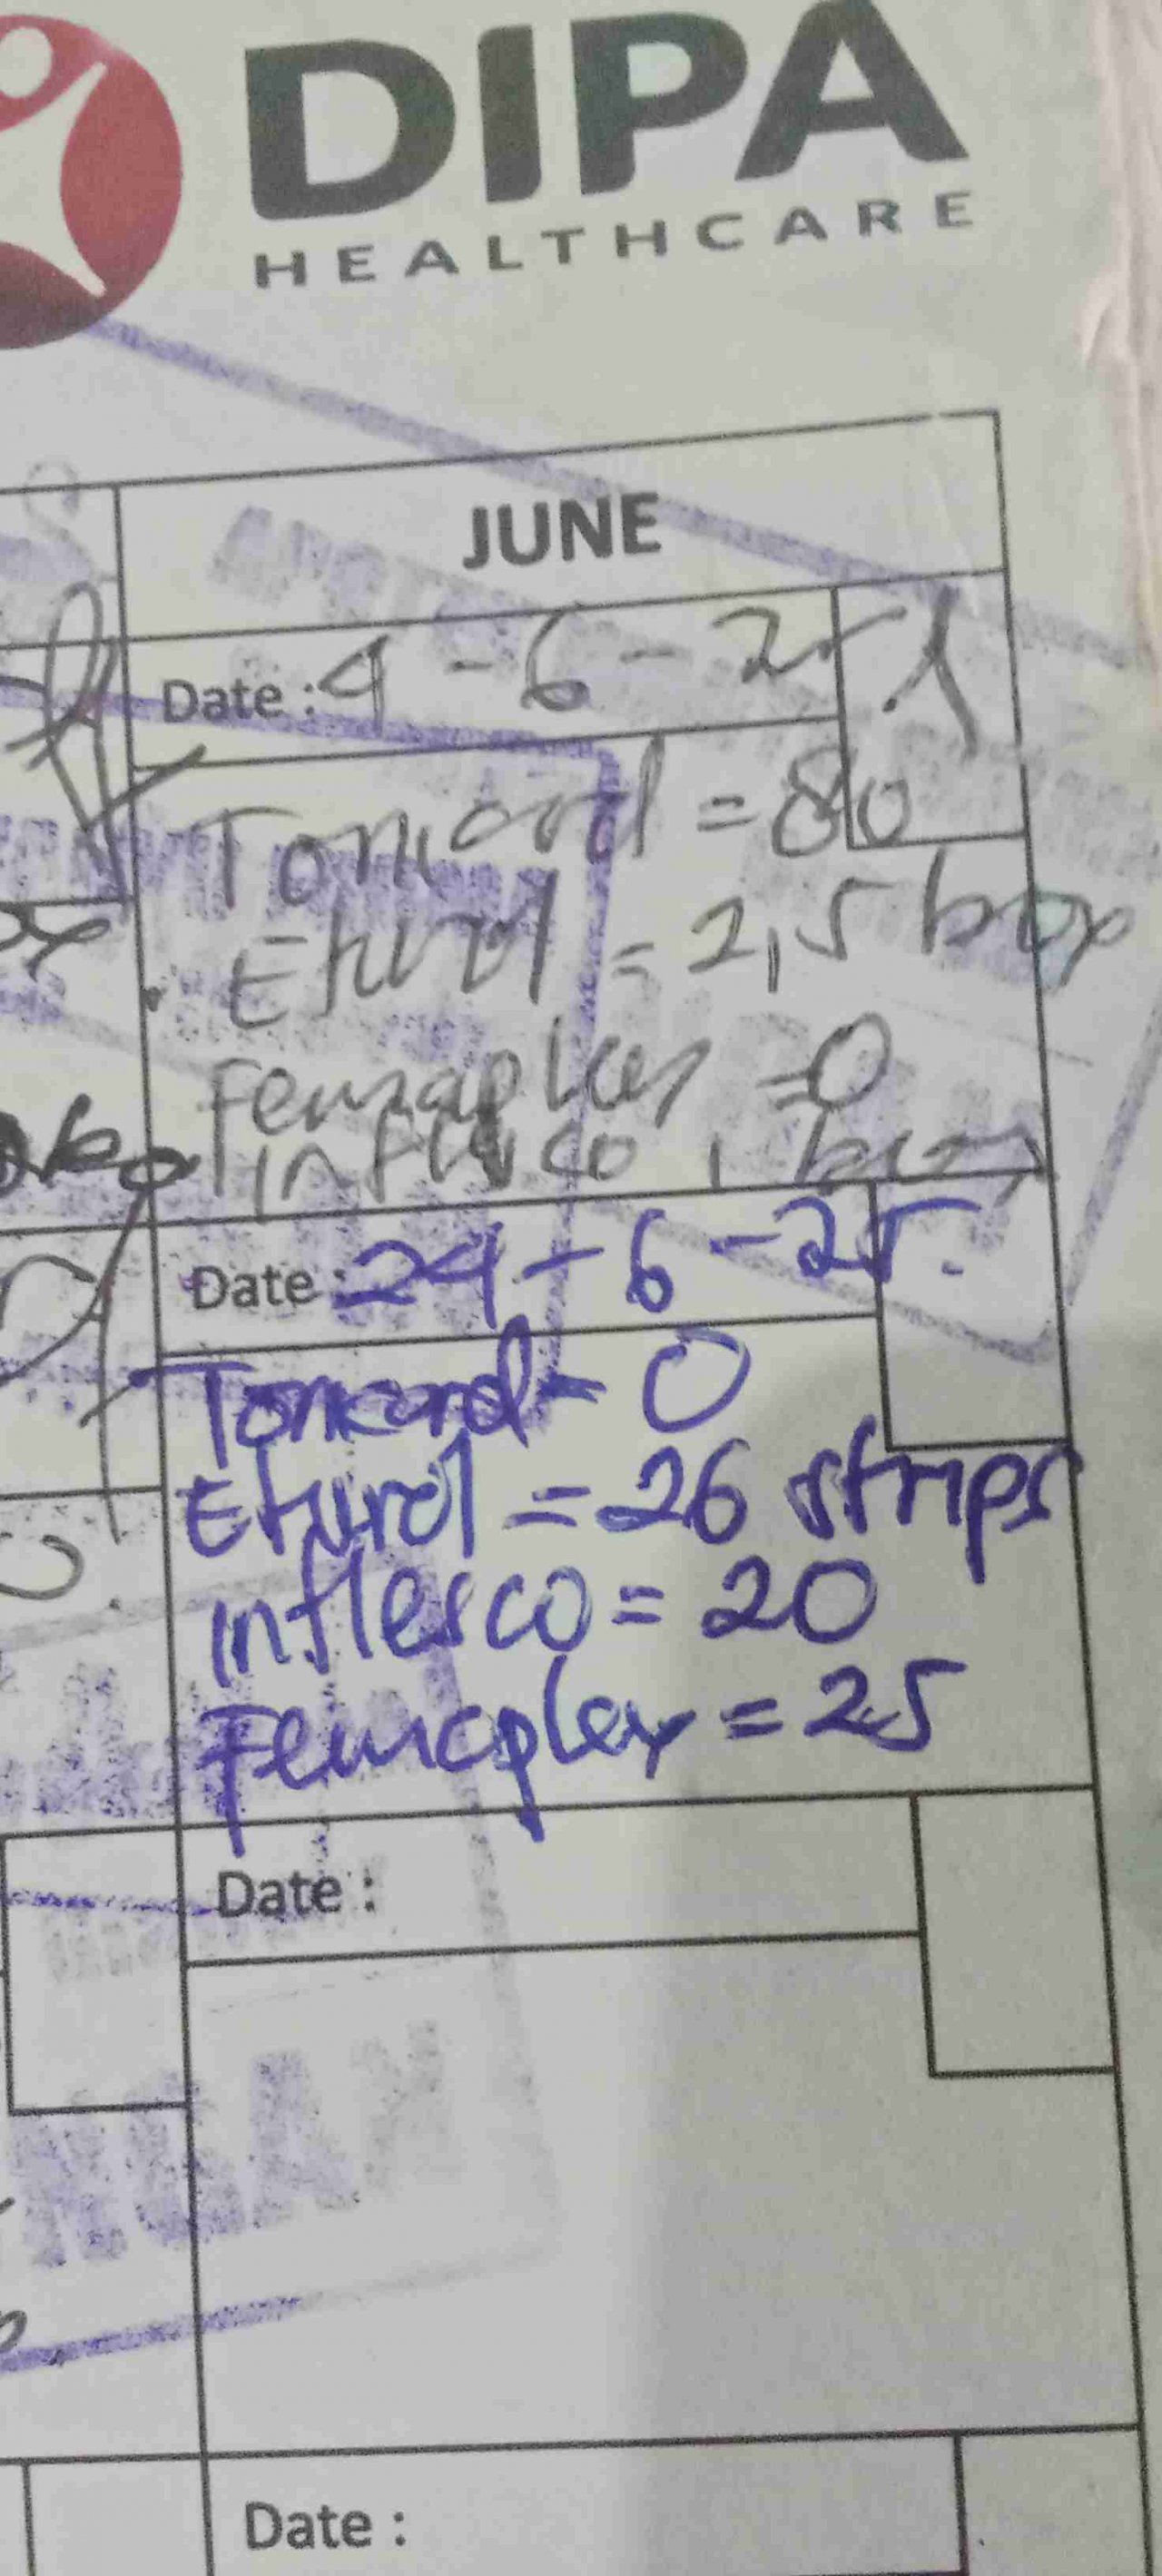 DIPA
HEALTHCARE
JUNE
Date : 4 - 6 - 25
Tonicard = 80
Eturol = 2,5 box
Femaplex = 0
inflesco 1 box
Date : 24 - 6 - 25.
Tonicard = 0
Eturol = 26 strips
inflesco = 20
Femaplex = 25
Date :
Date :